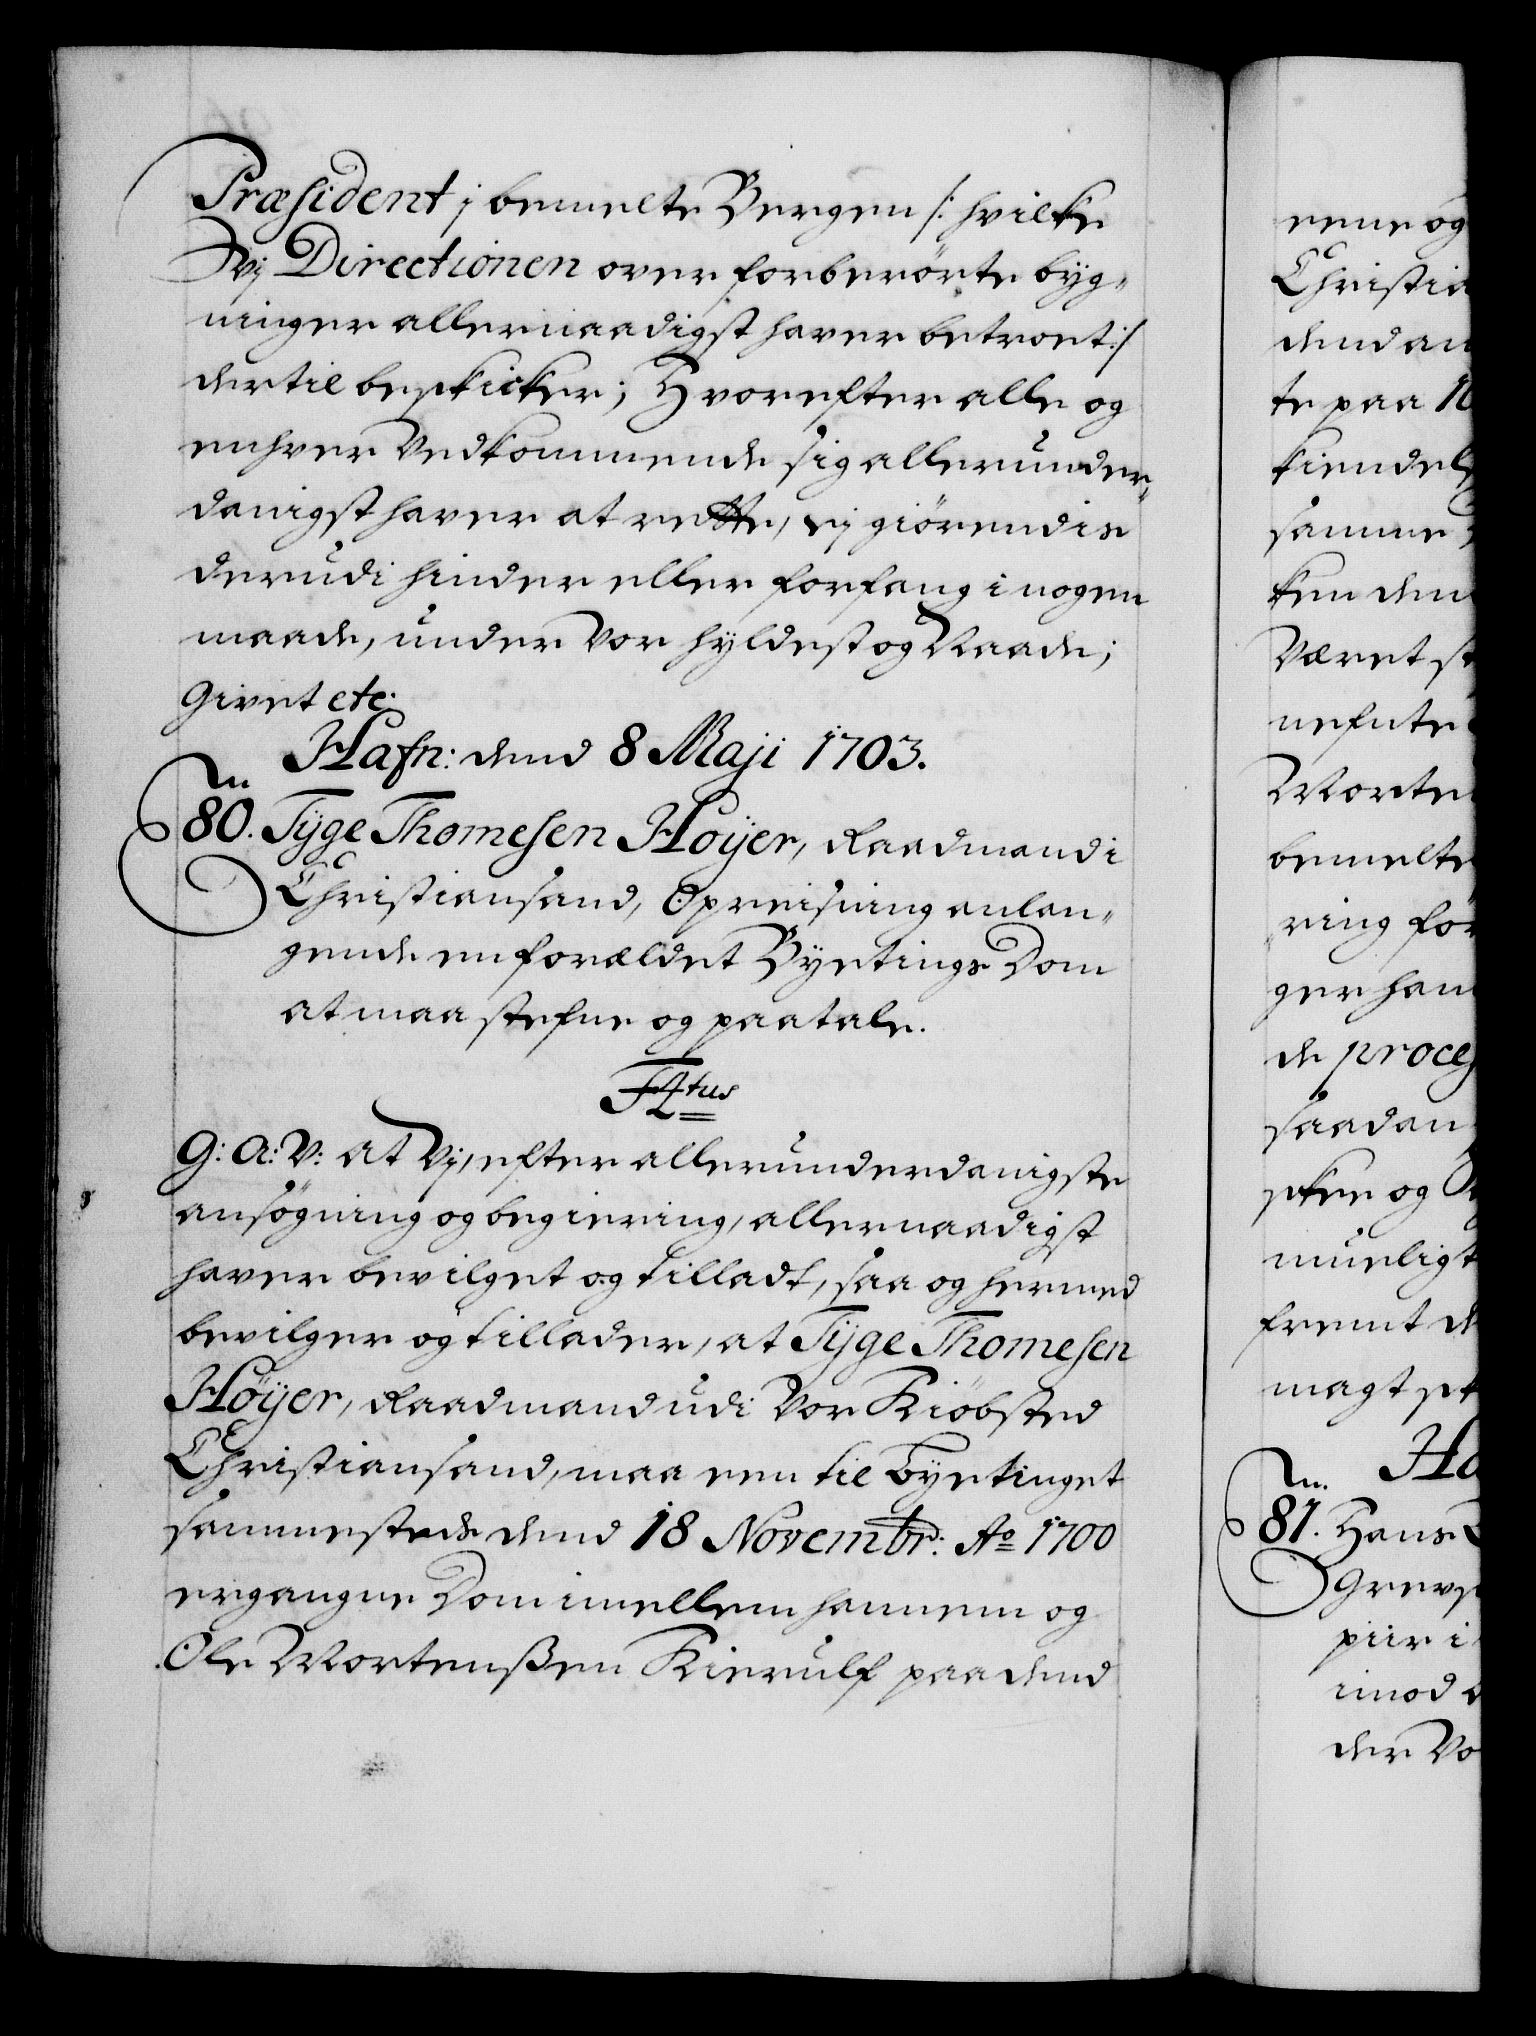 Præsident j bemelte Bergen /: hvilke
Vj Directionen over forberörte byg-
ninger allernaadigst haver betroet :/
dertil beskicker; Hvorefter alle og
enhver Vedkommende sig allerunder-
danigst haver at rette, ej giörendis
derudi hinder eller forfang i nogen
maade, under Vor hyldest og Naade;
Givet etc.
Hafn: dend 8 Maji 1703.
80. Tÿge Thomesen Höÿer, Raadmand i
Christiansand, Opreisning anlan-
gende en forældet Byetings Dom
at maa stefne og paatale.
F4tus
G: A: V: at Vj, efter allerunderdanigste
ansögning og begiering, allernaadigst
haver bevilget og tilladt, saa og hermed
bevilger og tillader, at Tÿge Thomesen
Höÿer, Raadmand udi Vor Kiöbsted
Christiansand, maa een til Byetinget
sammesteds dend 18 Novembr: Ao 1700
ergangne Dom imellem hannem og
Ole Mortenßen Kierulf paa dend
eene og
Christia
dend an
te paa 10
kiendels
samme
ken den
Været st
nefnte
Morten
bemelte
ring for
ger han
de proces
saadan
sker og
mueligt
fremt de
magt sk
Ha
81. Hans
Grevs
piir i
imod
der Vo